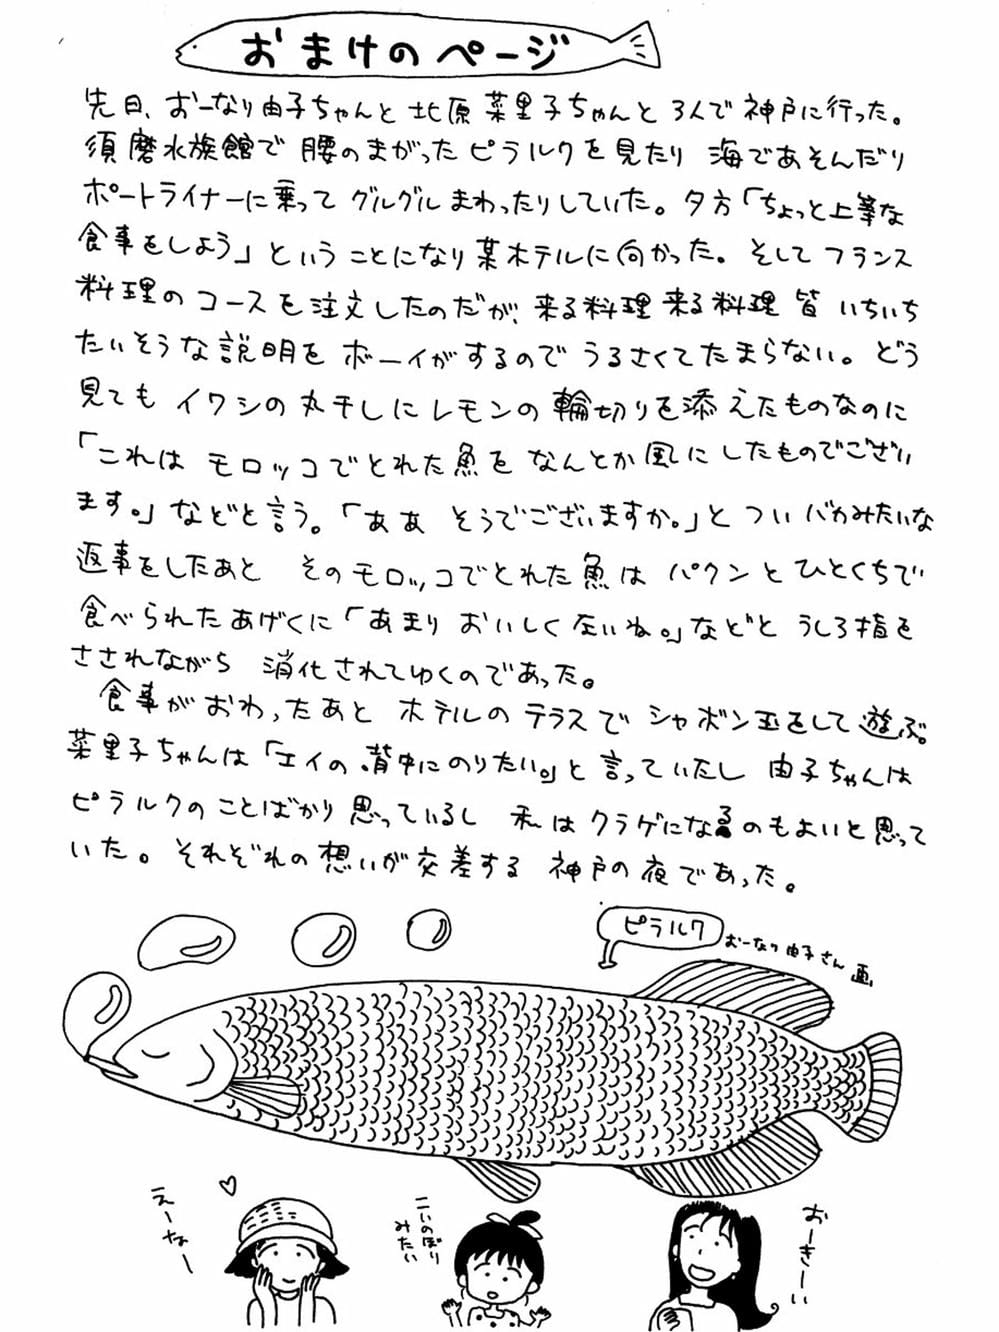 おまけのページ
先日、おーなり由子ちゃんと北原菜里子ちゃんと3人で神戸に行った。
須磨水族館で腰のまがったピラルクを見たり 海であそんだり
ポートライナーに乗ってグルグルまわったりしていた。夕方「ちょっと上等な
食事をしよう」ということになり某ホテルに向かった。そしてフランス
料理のコースを注文したのだが、来る料理来る料理 皆 いちいち
たいそうな説明をボーイがするのでうるさくてたまらない。どう
見てもイワシの丸干しにレモンの輪切りを添えたものなのに
「これは モロッコでとれた魚を なんとか風にしたものでござい
ます。」などと言う。「ああ そうでございますか。」とついバカみたいな
返事をしたあと そのモロッコでとれた魚は パクンとひとくちで
食べられたあげくに「あまり おいしくないね。」などと うしろ指を
さされながら 消化されてゆくのであった。
食事がおわったあと ホテルのテラスで シャボン玉をして遊ぶ。
菜里子ちゃんは「エイの背中にのりたい。」と言っていたし 由子ちゃんは
ピラルクのことばかり思っているし 私はクラゲになるのもよいと思って
いた。それぞれの想いが交差する 神戸の夜であった。
ピラルク
おーなり由子さん画
えーなー
こいのぼり
みたい
おーきーい